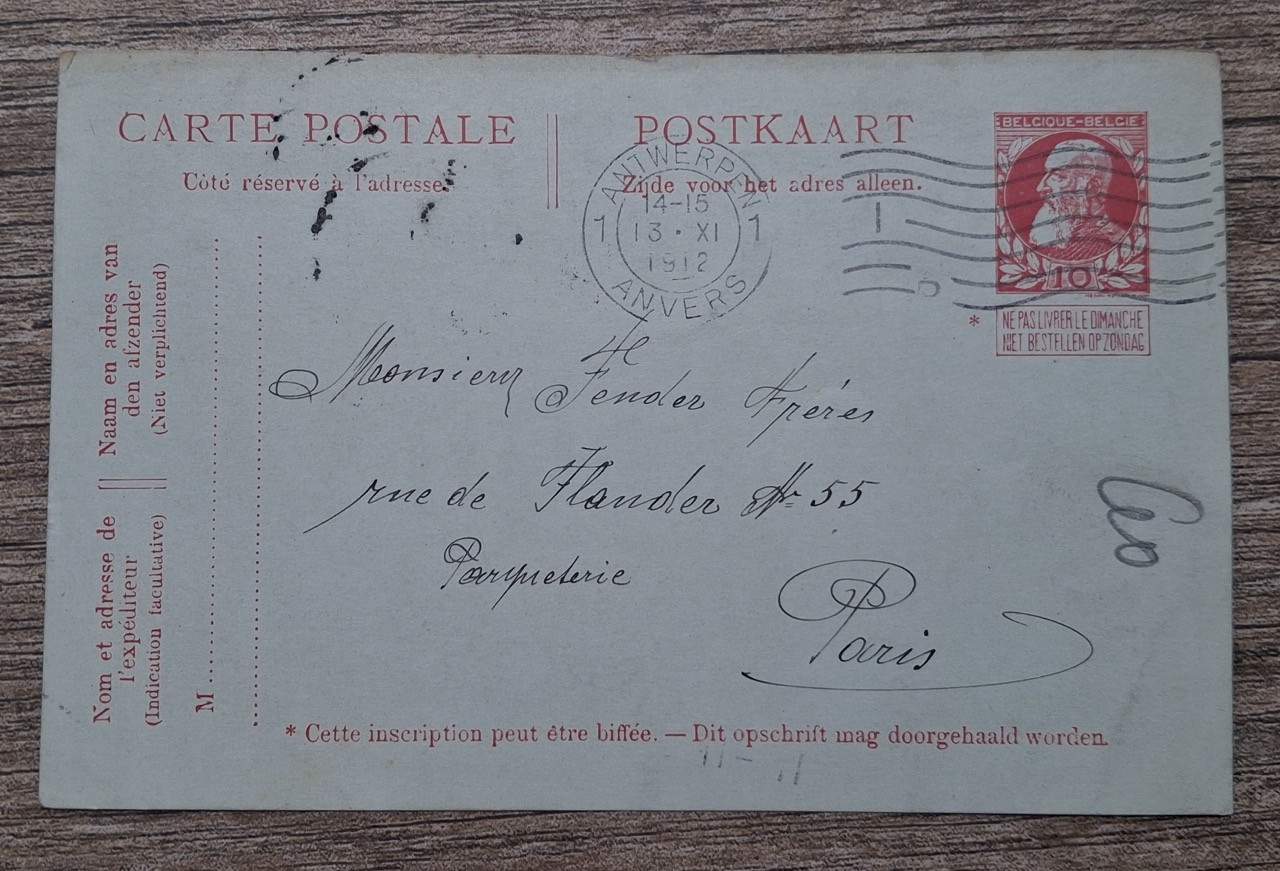 CARTE POSTALE
POSTKAART
Côté réservé à l'adresse.
Zijde voor het adres alleen.
BELGIQUE-BELGIE
10
NE PAS LIVRER LE DIMANCHE
NIET BESTELLEN OP ZONDAG
*
ANTWERPEN
14-15
1 13 · XI 1
1912
ANVERS
Naam en adres van
den afzender
(Niet verplichtend)
Nom et adresse de
l'expéditeur
(Indication facultative)
M
Monsieur Fender Fréres
rue de Flander Nr 55
Parqueterie
Paris
* Cette inscription peut être biffée. — Dit opschrift mag doorgehaald worden.